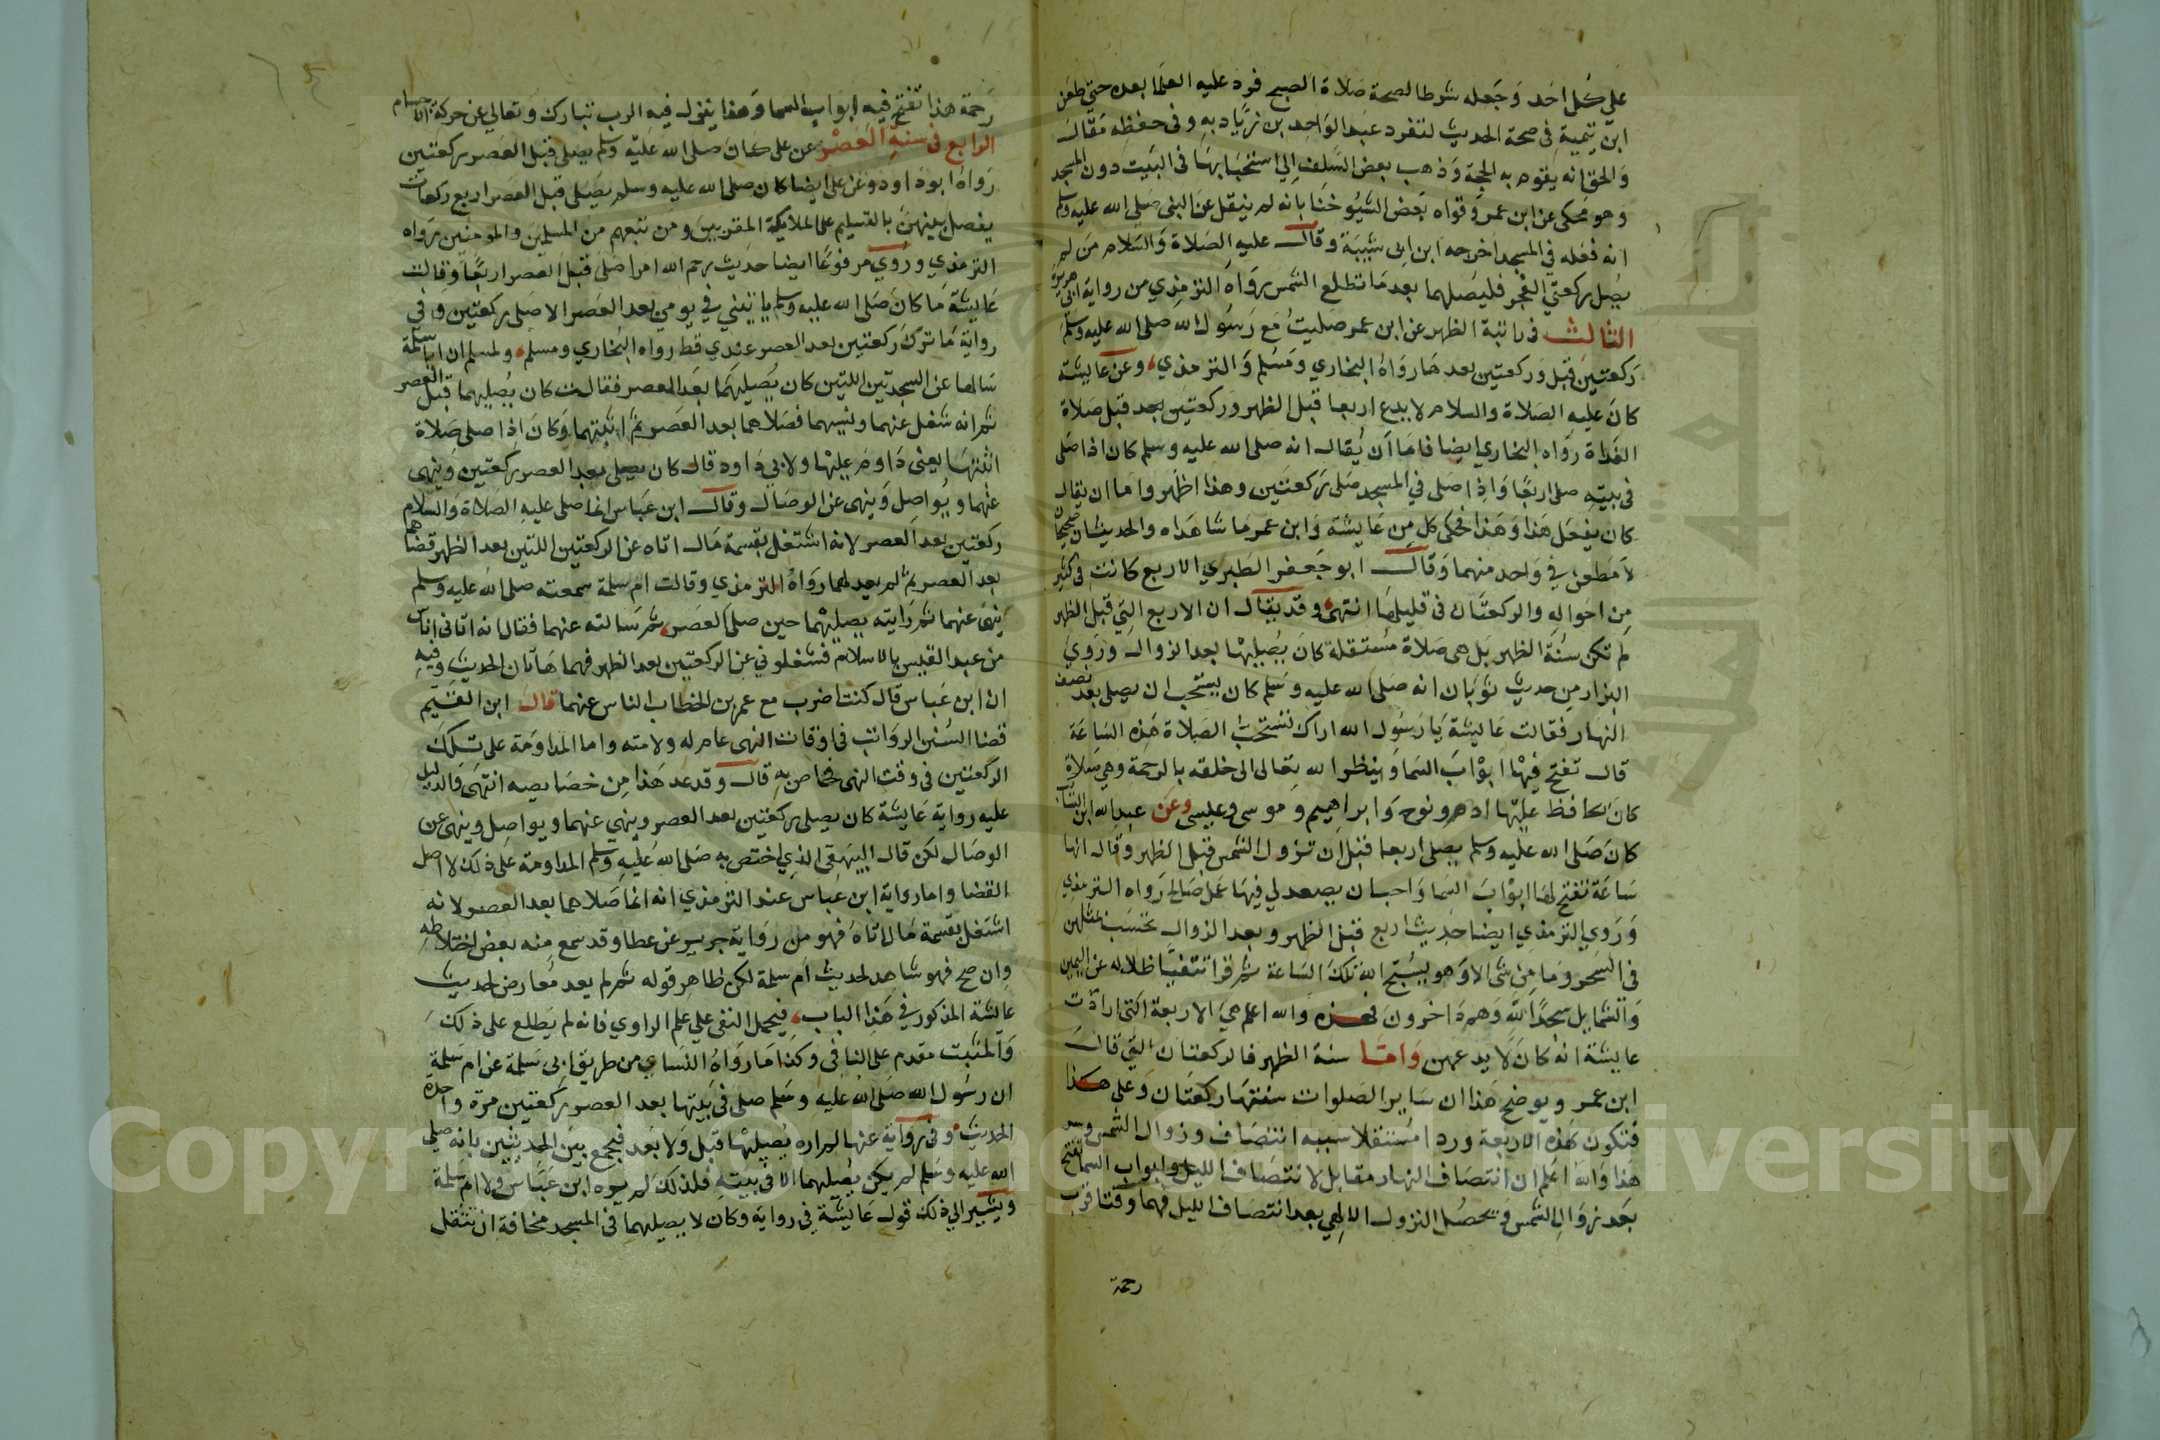 علي كل احد وجعله شرطا لصحة صلاة الصبح فرد عليه العلما بعده حتي طعن
ابن تيمية في صحة الحديث لتفرد عبد الواحد بن زياد به وفي حفظه مقال
والحق انه يقوم به الحجة وذهب بعض السلف الي استحبابها في البيت دون المسجد
وهو محكي عن ابن عمر وقواه بعض الشيوخنا بانه لم ينقل عن النبي صلي الله عليه وسلم
انه فعله في المسجد اخرجه ابن ابي شيبة وقال عليه الصلاة والسلام من لم
يصل ركعتي الفجر فليصلهما بعد ما تطلع الشمس رواه الترمذي من رواية ابي هريرة
الثالث في راتبة الظهر عن ابن عمر صليت مع رسول الله صلي الله عليه وسلم
ركعتين قبل وركعتين بعدها رواه البخاري ومسلم والترمذي وعن عايشة
كان عليه الصلاة والسلام لا يدع اربعا قبل الظهر وركعتين بعد قبل صلاة
الغداة رواه البخاري ايضا فاما ان يقال انه صلي الله عليه وسلم كان اذا صلي
في بيته صلي اربعا واذا صلي في المسجد صلي ركعتين وهذا اظهر واما ان يقال
كان يفعل هذا وهذا فحكي كل من عايشة وابن عمر ما شاهداه والحديثان صحيحان
لا مطعن في واحد منهما وقال ابو جعفر الطبري الاربع كانت في كثير
من احواله والركعتان في قليلها انتهي وقد يقال ان الاربع التي قبل الظهر
لم تكن سنة الظهر بل هي صلاة مستقلة كان يصليها بعد الزوال وروي
البزار من حديث ثوبان انه صلي الله عليه وسلم كان يستحب ان يصلي بعد نصف
النهار فقالت عايشة يا رسول الله اراك تستحب الصلاة هذه الساعة
قال تفتح فيها ابواب السما وينظر الله تعالى الى خلقه بالرحمة وهي صلاة
كان يحافظ عليها ادم ونوح وابراهيم وموسى وعيسى وعن عبد الله ابن السائب
كان صلى الله عليه وسلم يصلي اربعا قبل ان تزول الشمس قبل الظهر وقال انها
ساعة تفتح لها ابواب السما واحب ان يصعد لي فيها عمل صالح رواه الترمذي
وروي الترمذي ايضا حديث اربع قبل الظهر وبعد الزوال تحسب بمثلهن
في السحر وما من شي الا وهو يسبح الله تلك الساعة ثم قرا تتفيا ظلاله عن اليمين
والشمايل سجدا لله وهم داخرون فهذه والله اعلم هي الاربعة التي ارادت
عايشة انه كان لا يدعهن واما سنة الظهر فالركعتان التي قال
ابن عمر ويوضح هذا ان ساير الصلوات سنتها ركعتان وعلي هذا
فتكون هذه الاربعة وردا مستقلا سببه انتصاف وزوال الشمس وسر
هذا والله اعلم ان انتصاف النهار مقابل لانتصاف الليل وابواب السما تفتح
بعد زوال الشمس ويحصل النزول الالهي بعد انتصاف الليل فهما وقتا قرب
رحمة
رحمة هذا تفتح فيه ابواب السما وهذا ينزل فيه الرب تبارك وتعالي عن حركة الاجسام
الرابع في سنة العصر عن علي كان صلي الله عليه وسلم يصلي قبل العصر ركعتين
رواه ابو داود وعن علي ايضا كان صلي الله عليه وسلم يصلي قبل العصر اربع ركعات
يفصل بينهن بالتسليم على الملايكة المقربين ومن تبعهم من المسلمين والمومنين رواه
الترمذي وروي مرفوعا ايضا حديث رحم الله امرا صلي قبل العصر اربعا وقالت
عايشة ما كان صلي الله عليه وسلم ياتيني في يومي بعد العصر الا صلي ركعتين وفي
رواية ما ترك ركعتين بعد العصر عندي قط رواه البخاري ومسلم ولمسلم ان ابا سلمة
سالها عن السجدتين اللتين كان يصليهما بعد العصر فقالت كان يصليهما قبل العصر
ثم انه شغل عنهما او نسيهما فصلاهما بعد العصر ثم اثبتهما وكان اذا صلي صلاة
اثبتها يعني داوم عليها ولابي داود قال كان يصلي بعد العصر ركعتين وينهى
عنهما ويواصل وينهى عن الوصال وقال ابن عباس انما صلي عليه الصلاة والسلام
ركعتين بعد العصر لانه اشتغل بقسمة مال اتاه عن الركعتين اللتين بعد الظهر فقضاهما
بعد العصر ثم لم يعد لهما رواه الترمذي وقالت ام سلمة سمعته صلى الله عليه وسلم
ينهي عنهما ثم رايته يصليهما حين صلى العصر ثم سالته عنهما فقال انه اتاني اناس
من عبد القيس بالاسلام فشغلوني عن الركعتين بعد الظهر فهما هاتان الحديث وفيه
ان ابن عباس قال كنت اضرب مع عمر بن الخطاب الناس عنهما قال ابن القيم
قضا السنن الرواتب في اوقات النهى عام له ولامته واما المداومة على تلك
الركعتين في وقت النهي فخاص به قال وقد عد هذا من خصايصه انتهى والدليل
عليه رواية عايشة كان يصلي ركعتين بعد العصر وينهي عنهما ويواصل وينهى عن
الوصال لكن قال البيهقي الذي اختص به صلي الله عليه وسلم المداومة على ذلك لا اصل
القضا واما رواية ابن عباس عند الترمذي انه انما صلاهما بعد العصر لانه
اشتغل بقسمة مال اتاه فهو من رواية جرير عن عطا وقد سمع منه بعض اختلاطه
وان صح فهو شاهد لحديث ام سلمة لكن ظاهر قوله ثم لم يعد معارض لحديث
عايشة المذكور في هذا الباب فيحمل النفي علي علم الراوي فانه لم يطلع على ذلك
والمثبت مقدم على النافي وكذا ما رواه النساي من طريق ابي سلمة عن ام سلمة
ان رسول الله صلى الله عليه وسلم صلى في بيتها بعد العصر ركعتين مرة واحدة
الحديث وفي رواية عنها لم اره يصليها قبل ولا بعد فيجمع بين الحديثين بانه صلى
الله عليه وسلم لم يكن يصليهما الا في بيته فلذلك لم يره ابن عباس ولا ام سلمة
ويشير الي ذلك قول عايشة في رواية وكان لا يصليهما في المسجد مخافة ان تثقل